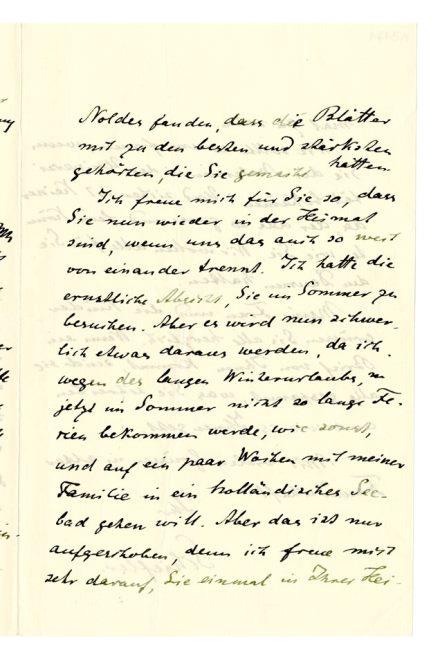 Noldes fanden, dass die Blätter
mit zu den besten und stärksten
gehörten, die Sie gemacht hatten.
Ich freue mich für Sie so, dass
Sie nun wieder in der Heimat
sind, wenn uns das auch so weit
von einander trennt. Ich hatte die
ernstliche Absicht, Sie im Sommer zu
besuchen. Aber es wird nun schwer-
lich etwas daraus werden, da ich
wegen des langen Winterurlaubs,
jetzt im Sommer nicht so lange Fe-
rien bekommen werde, wie sonst,
und auf ein paar Wochen mit meiner
Familie in ein holländisches See-
bad gehen will. Aber das ist nur
aufgeschoben, denn ich freue mich
sehr darauf, Sie einmal in Ihrer Hei-